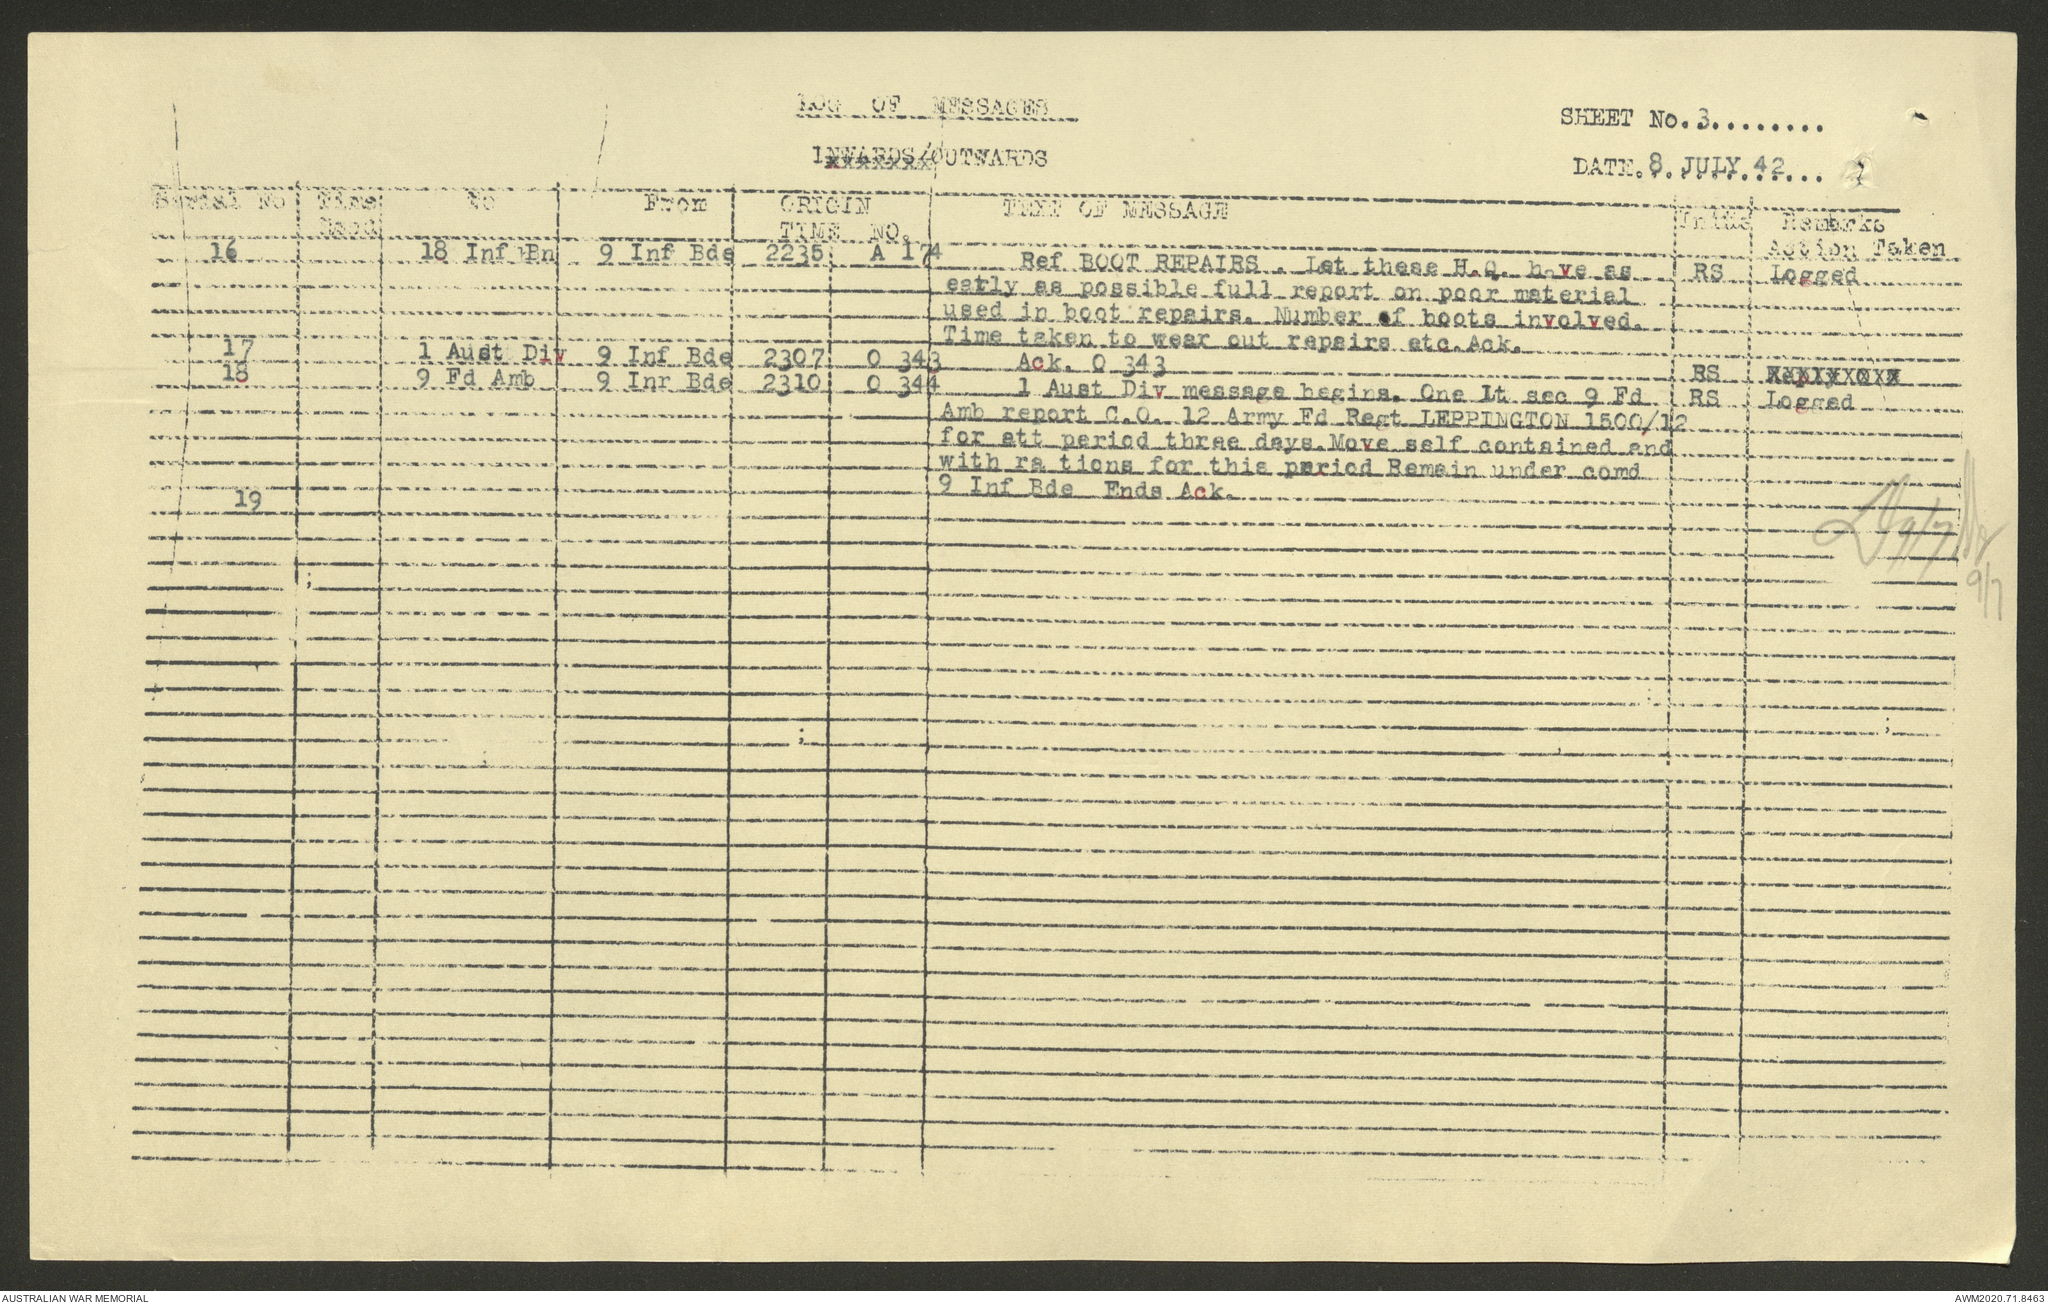 LOG OF MESSAGES
SHEET No. 3........
INWARDS/OUTWARDS
DATE. 8. JULY. 42....
Serial No Time To From ORIGIN TEXT OF MESSAGE Initls Remarks
Recd TIME NO. Action Taken
16 18 Inf Bn 9 Inf Bde 2235 A 174 Ref BOOT REPAIRS . Let these H.Q. have as RS Logged
early as possible full report on poor material
used in boot repairs. Number of boots involved.
Time taken to wear out repairs etc. Ack.
17 1 Aust Div 9 Inf Bde 2307 O 343 Ack. O 343 RS
18 9 Fd Amb 9 Inr Bde 2310 O 344 1 Aust Div message begins. One Lt sec 9 Fd RS Logged
Amb report C.O. 12 Army Fd Regt LEPPINGTON 1500/12
for att period three days. Move self contained and
with ra tions for this period Remain under comd
9 Inf Bde Ends Ack.
19
9/7
9/7
AUSTRALIAN WAR MEMORIAL
AWM2020.71.8463